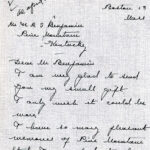 Boston 13
Mass
Mr. W. R. F. Benjamin
Pine Mountain
Kentucky
Dear Mr Benjamin
I am very glad to send
you my small gift
I only wish it could be
more.
I have so many pleasant
memories of Pine Mountain